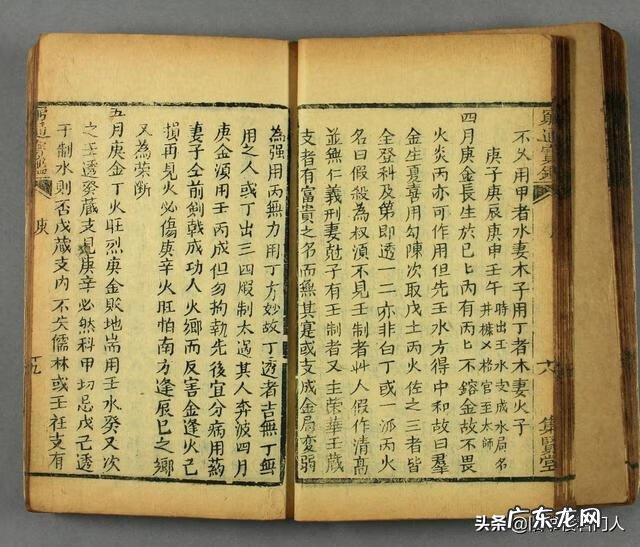 不久用甲者水妻木子用丁者木妻火子
庚子庚辰庚申壬午
時出壬水支成水局名
井欄乂格官至太師
四月庚金長生於巳巳內有丙巳不鎔金故不畏
火炎丙亦可作用但先壬水方得中和故曰羣
金生夏喜用勾陳次取戊土丙火佐之三者皆
全登科及第即透一二亦非白丁或一派丙火
名曰假殺為权湏不見壬制者此人假作清高
並無仁義刑妻尅子有壬制者又主荣華壬藏
支者有富貴之名而無其寔或支成金局変弱
為强用丙無力用丁方妙故丁透者吉無丁無
用之人或丁出三四叚制太過其人奔波四月
庚金湏用壬丙戊但勿拘執先後宜分病用葯
妻子仝前劍戟成功人火鄉而反害金逢火已
損再見火必傷庚辛火旺怕南方逢辰巳之鄉
又為荣斷
五月庚金丁火旺烈庚金敗地耑用壬水癸又次
之壬透癸藏支見庚辛必然科甲切忌戊己透
干制水則否戊藏支內不失儒林或壬在支有
庚
集賢堂
头条
广东龙网